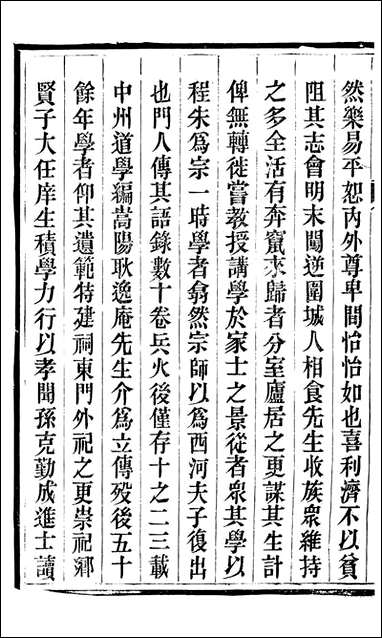 然樂易平恕內外尊卑間怡怡如也喜利濟不以貧
阻其志會明末闖逆圍城人相食先生收族衆維持
之多全活有奔竄來歸者分室廬居之更謀其生計
俾無轉徙嘗教授講學於家士之景從者衆其學以
程朱爲宗一時學者翕然宗師以爲西河夫子復出
也門人傳其語錄數十卷兵火後僅存十之二三載
中州道學編嵩陽耿逸庵先生介爲立傳歿後五十
餘年學者仰其遺範特建祠東門外祀之更崇祀鄉
賢子大任庠生積學力行以孝聞孫克勤成進士讀